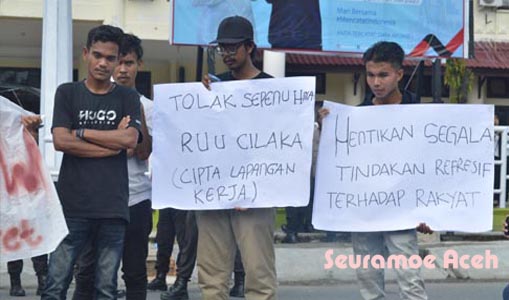 Mari Bersama
TOLAK SEPENUHNYA
RUU CILAKA
(CIPTA LAPANGAN
KERJA)
HENTIKAN SEGALA
TINDAKAN REPRESIF
TERHADAP RAKYAT
HUGO
Seuramoe Aceh